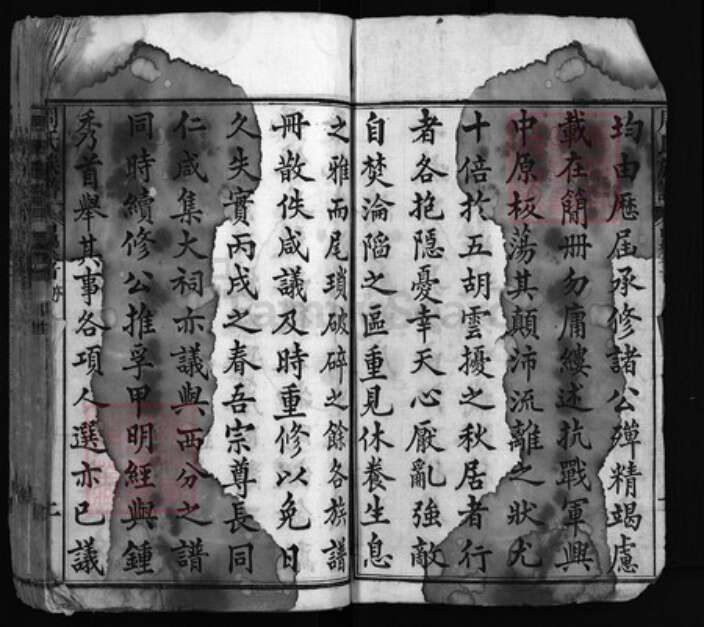 均由歷屆承修諸公殫精竭慮
載在簡冊勿庸縷述抗戰軍興
中原板蕩其顛沛流離之狀尤
十倍於五胡雲擾之秋居者行
者各抱隱憂幸天心厭亂強敵
自焚淪陷之區重見休養生息
之雅而尾瑣破碎之餘各族譜
冊散佚咸議及時重修以免日
久失實丙戌之春吾宗尊長同
仁咸集大祠亦議與西分之譜
同時續修公推孚甲明經與鍾
秀首舉其事各項人選亦已議
二